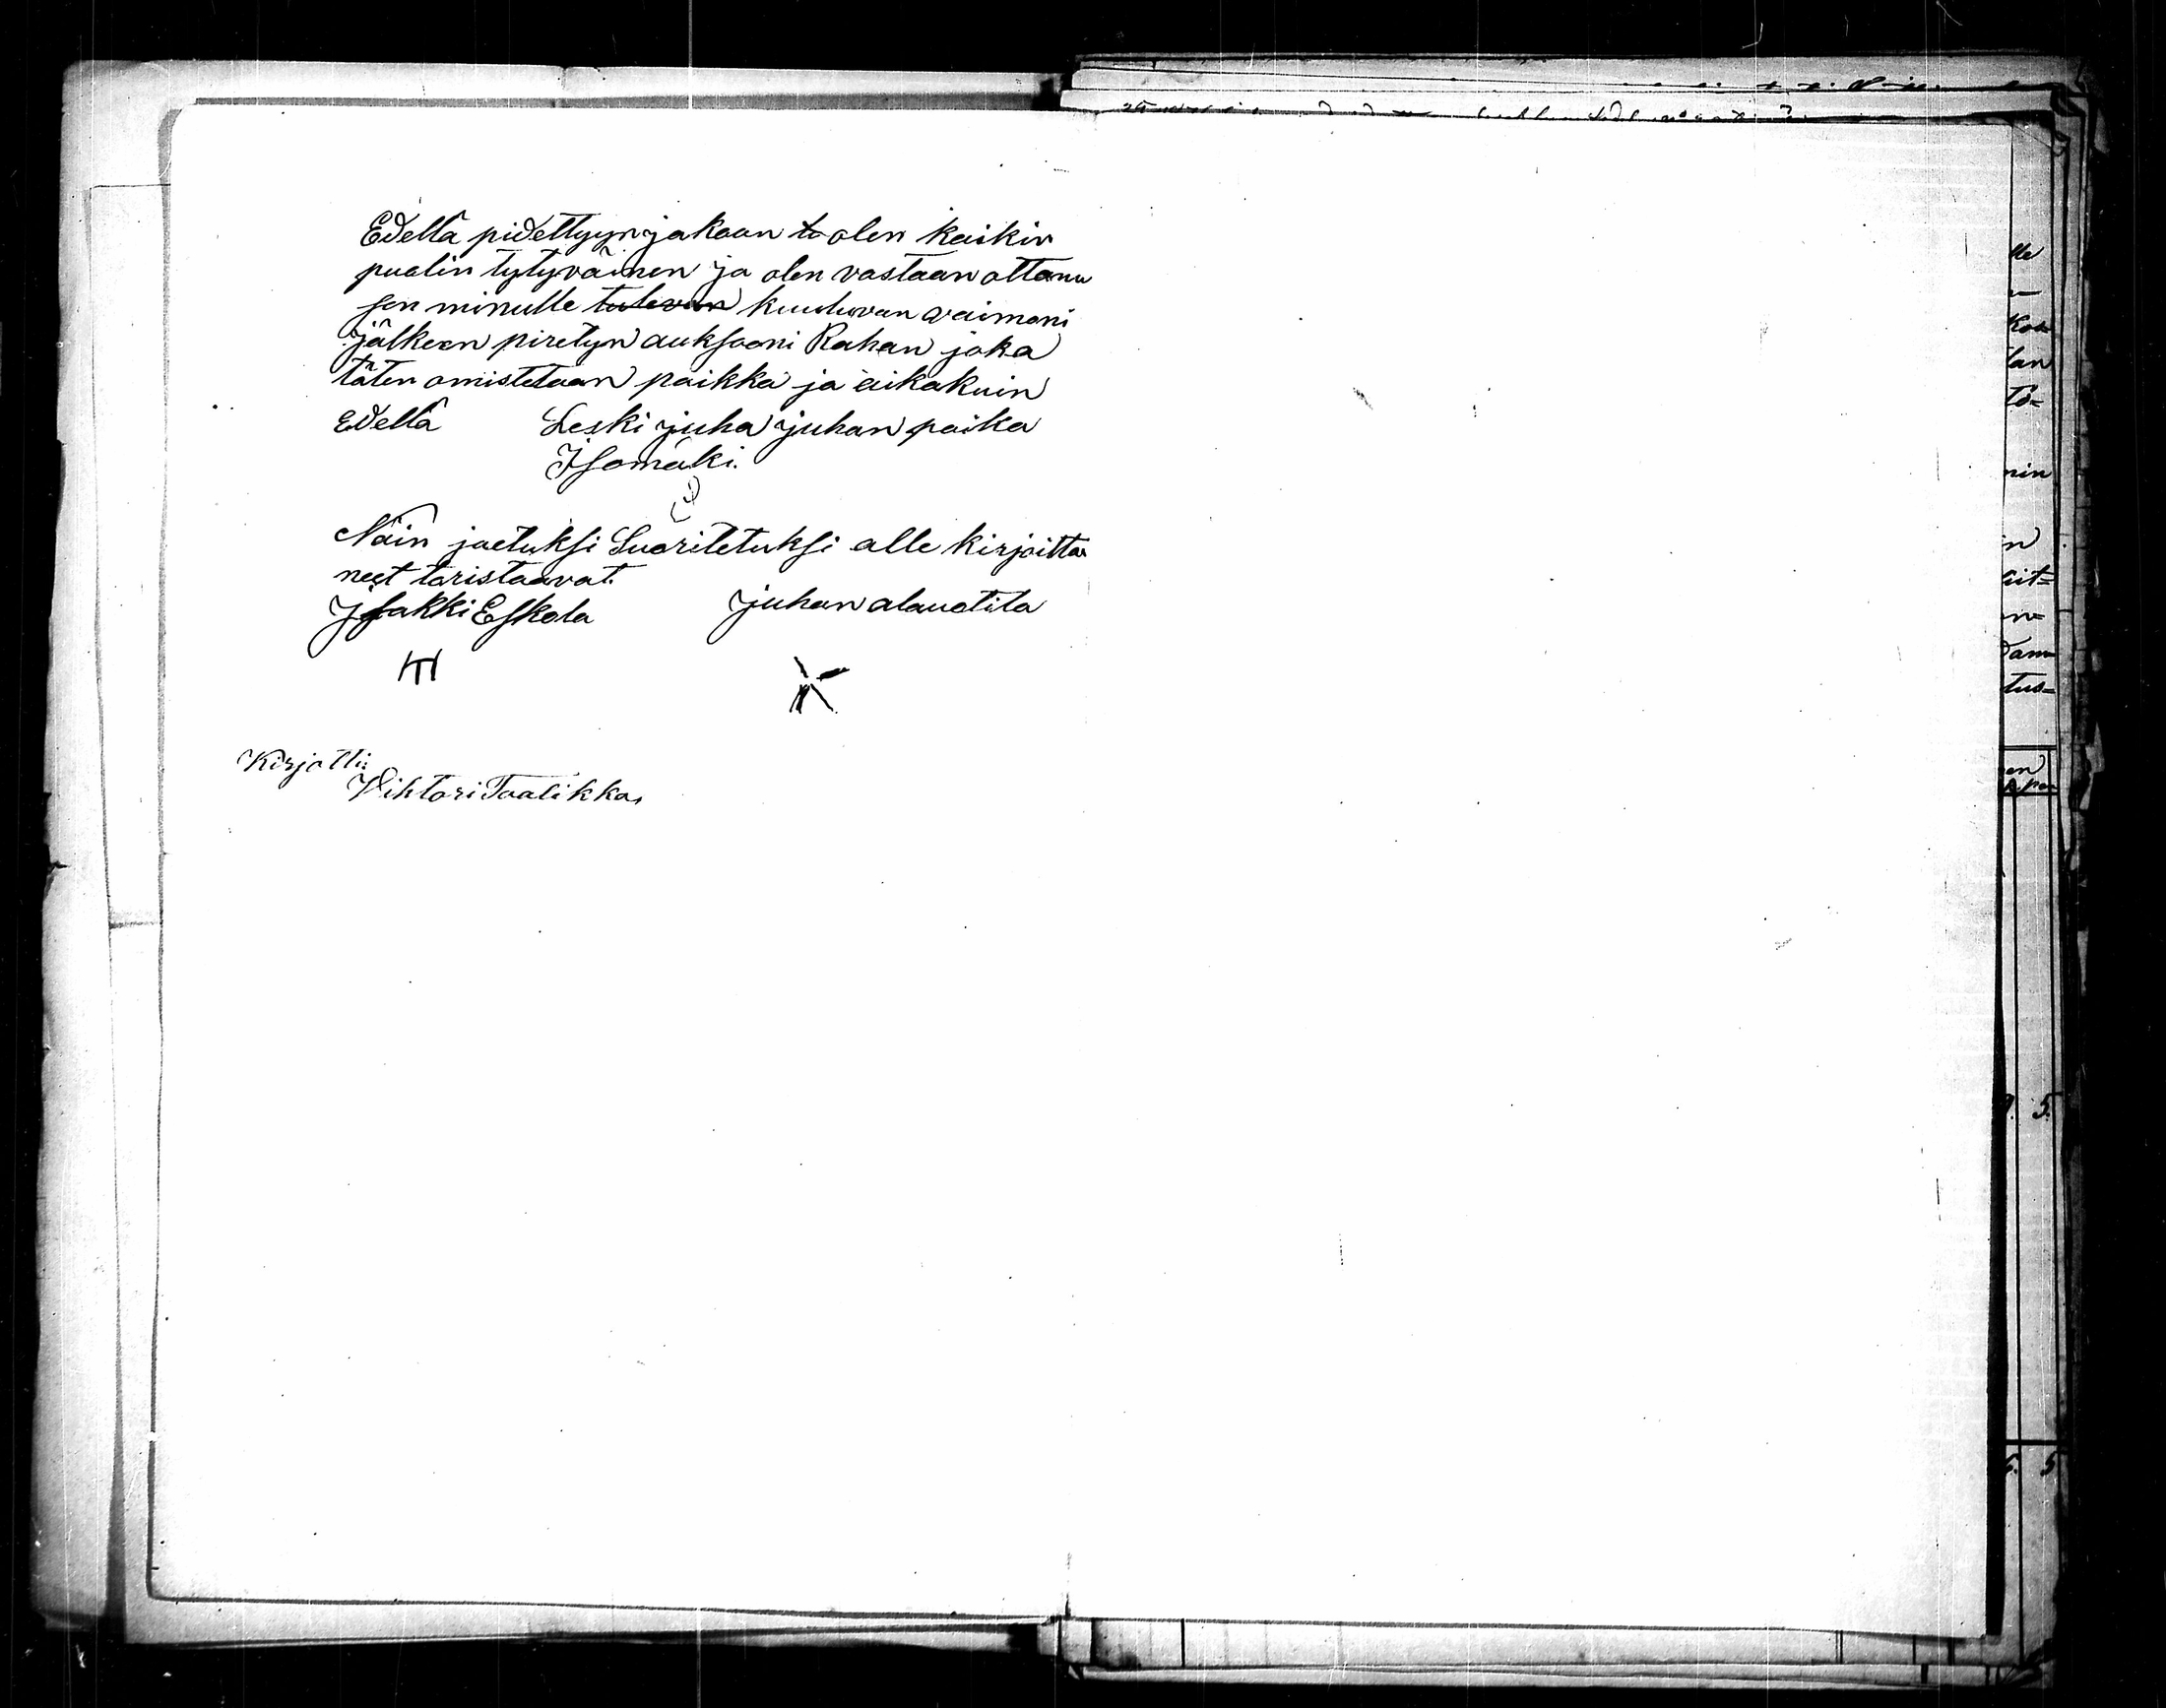 Edellä pidettyyn jakoon to olen kaikin
puolin tytyväinen ja olen vastaan ottanu
sen minulle tulevan kuuluvan vaimoni
jälkeen piretyn auksooni Rahan joka
täten omistetaan paikka ja aika kuin
Edellä Leski juha juhan poika
Isomäki.
Näin jaetuksi Suoritetuksi alle kirjoitta
neet toristaavat.
Jsakki Eskola juhan alauotila
Kirjotti:
Vihtori Taalikka,
lle
Kos
lan
tö=
nin
n
tus=
en
5.
5